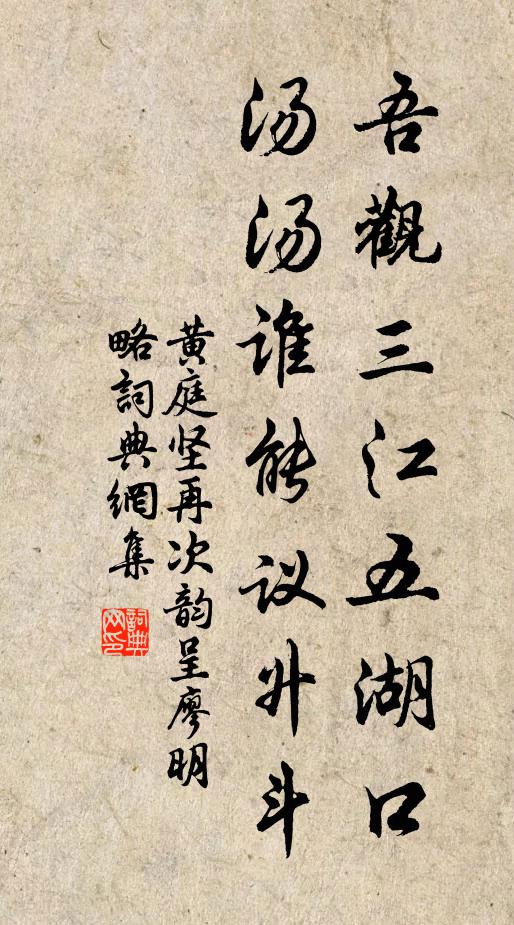 吾觀三江五湖口
汤汤谁能议升斗
黄庭坚再次韵呈廖明
略詞典網集
詞典
网印